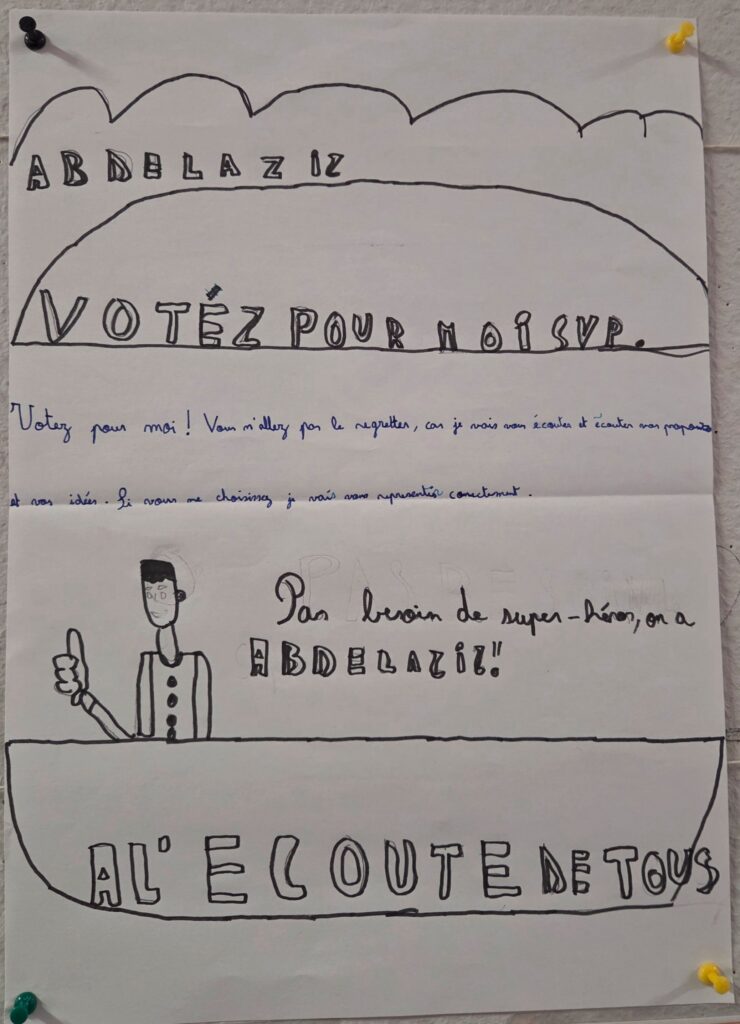 ABDELAZIZ
VOTÉZ POUR MOI SVP.
Votez pour moi ! Vous n'allez pas le regretter, car je vais vous écouter et écouter vos propositions
et vos idées. Si vous me choisissez je vais vous representer correctement.
Pas besoin de super-héros, on a
ABDELAZIZ!!
A L'ECOUTE DE TOUS